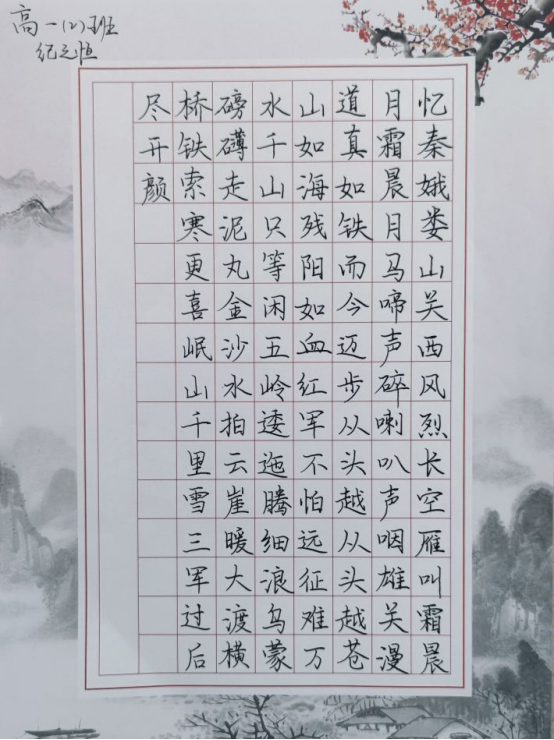 高一(2)班
纪之恒
忆秦娥娄山关西风烈长空雁叫霜晨
月霜晨月马啼声碎喇叭声咽雄关漫
道真如铁而今迈步从头越从头越苍
山如海残阳如血红军不怕远征难万
水千山只等闲五岭逶迤腾细浪乌蒙
磅礴走泥丸金沙水拍云崖暖大渡横
桥铁索寒更喜岷山千里雪三军过后
尽开颜